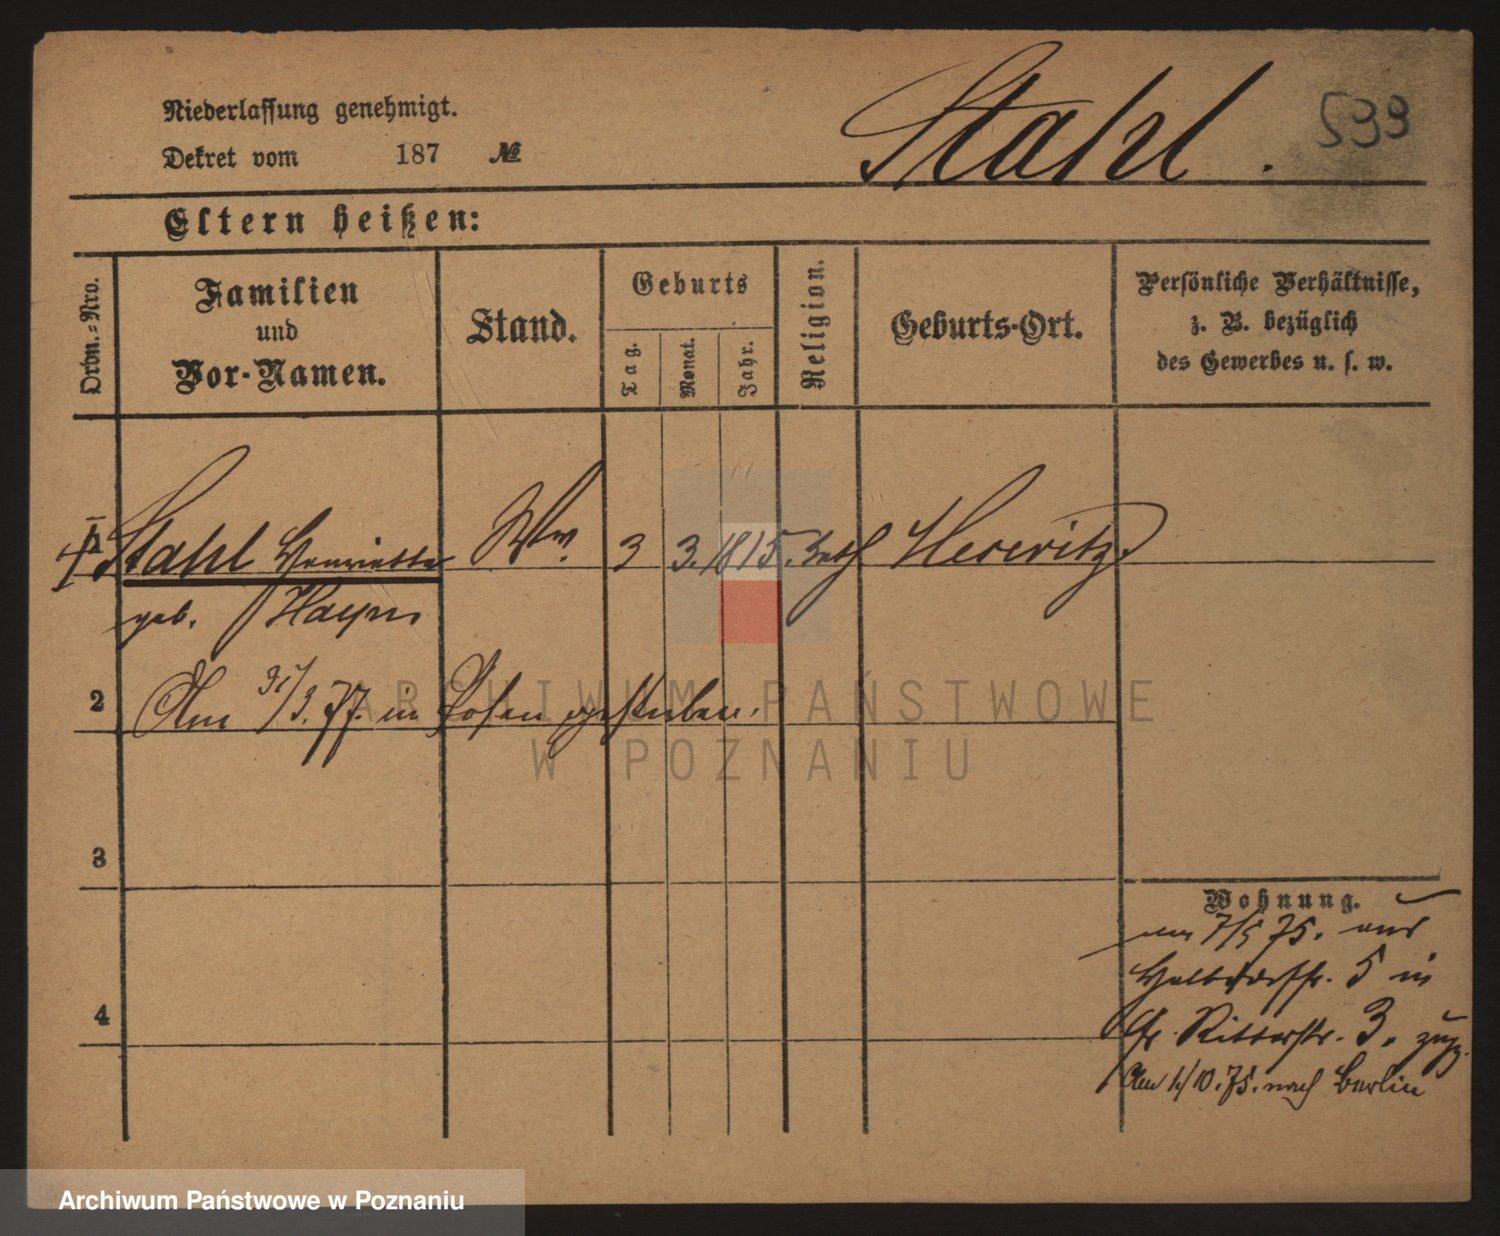 Niederlassung genehmigt.
Dekret vom 187 №
Stahl.
539
Eltern heißen:
Ordn.-Nro.
Familien
und
Vor-Namen.
Stand.
Geburts
Tag.
Monat.
Jahr.
Religion.
Geburts-Ort.
Persönliche Verhältnisse,
z. B. bezüglich
des Gewerbes u. s. w.
Stahl Henriette Ww. 3 3. 1815. kath
geb.
2 Am 31/3. 77. in Posen gestorben.
3
4
Wohnung.
7/5 75. aus
5 in
gr. Ritterstr. 3. zugz.
Am 1/10. 75. nach Berlin
ARCHIWUM PAŃSTWOWE
W POZNANIU
Archiwum Państwowe w Poznaniu